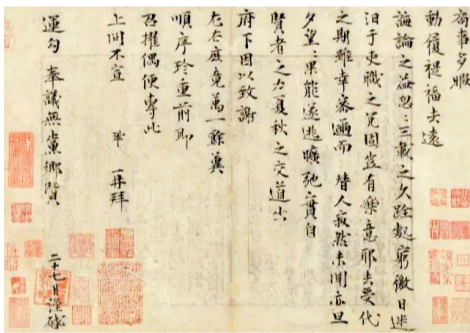 齋事多暇
動履禔福去遠
誨論之益忽三載之久跧縶窮徼日迷
汩于吏職之冗固豈有樂意耶去受代
之期雖幸密邇而替人寂然未聞亦旦
夕望果能遂逃曠弛實自
賢者之力夏秋之交道出
府下因以致謝
左右庶竟萬一餘冀
順序珍重前即
召擢偶便專此
上問不宣 鞏 再拜
運勾奉議無黨鄉賢
二十七日謹啟